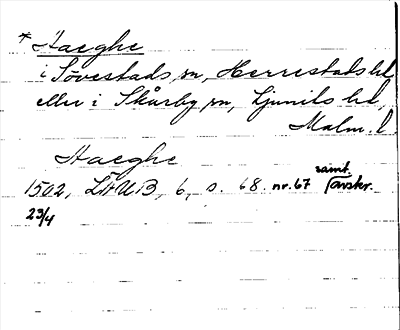 * Haeghe
i Sövestads sn, Herrestads hd
eller i Skårby sn, Ljunits hd,
Malm. l.
Haeghe
1502, LÄUB, 6, s. 68. nr. 67 samt. avskr.
23/4